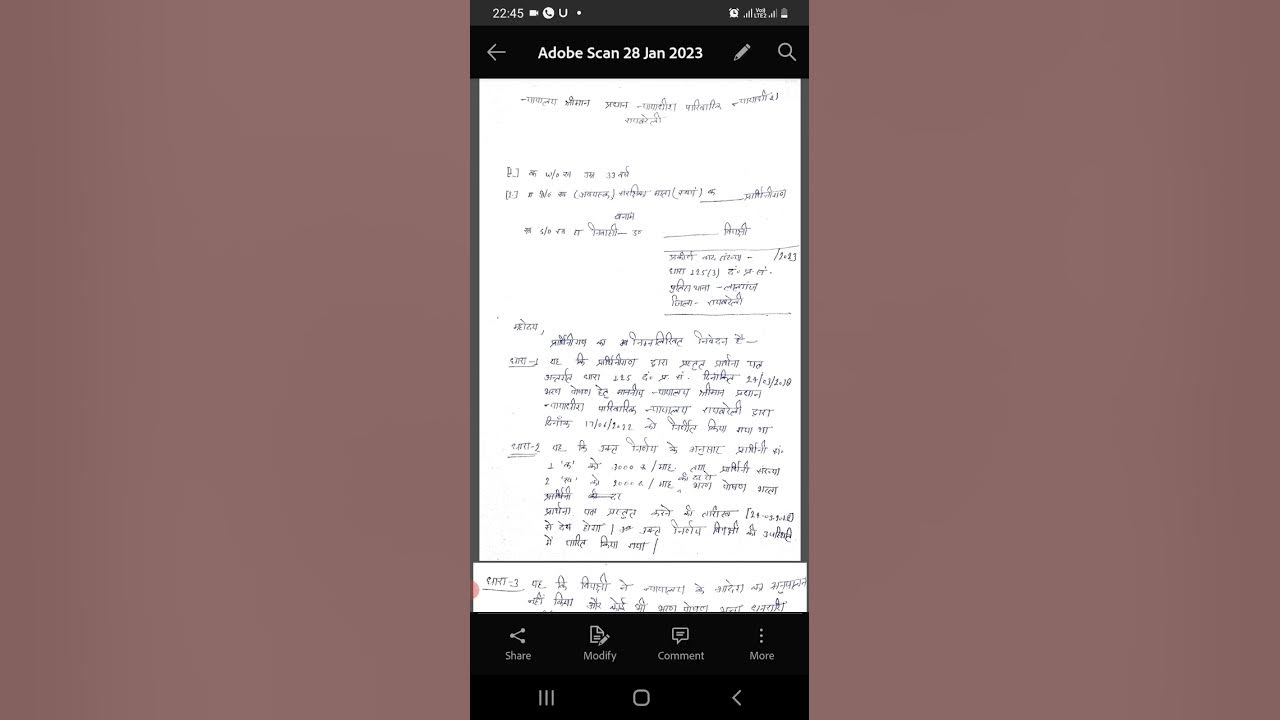 22:45
Adobe Scan 28 Jan 2023
न्यायालय श्रीमान प्रधान न्यायाधीश पारिवारिक न्यायाधीश
रायबरेली
[1] क w/o अ उम्र 33 वर्ष
(अवयस्क) संरक्षिका माता (स्वयं) क ______ प्रार्थिनीगण
बनाम
निवासी- उ० ______ विपक्षी
प्रकीर्ण वाद संख्या - /2023
धारा 125(3) दं० प्र० सं.
पुलिस थाना - लालगंज
जिला- रायबरेली
महोदय,
प्रार्थिनीगण का निम्नलिखित निवेदन है-
धारा-1 यह कि प्रार्थिनीगण द्वारा प्रस्तुत प्रार्थना पत्र
अन्तर्गत धारा 125 दं० प्र. सं. दिनांकित 24/03/2018
भरण पोषण हेतु माननीय न्यायालय श्रीमान प्रधान
न्यायाधीश पारिवारिक न्यायालय रायबरेली द्वारा
दिनाँक 17/06/2022 को निर्णीत किया गया था
धारा-2 यह कि उक्त निर्णय के अनुसार प्रार्थिनी सं.
1 'क' को 3000 रु/माह तथा प्रार्थिनी संख्या
2 'ख' को 2000 रु/माह की दर से भरण पोषण भत्ता
प्रार्थिनी
प्रार्थना पत्र प्रस्तुत करने की तारीख [24-03-2018]
से देय होगा | उक्त निर्णय विपक्षी की उपस्थिति
में पारित किया गया |
धारा-3 यह कि विपक्षी ने न्यायालय के आदेश का अनुपालन
नहीं किया और कोई भी भरण पोषण भत्ता धनराशि
Share Modify Comment More